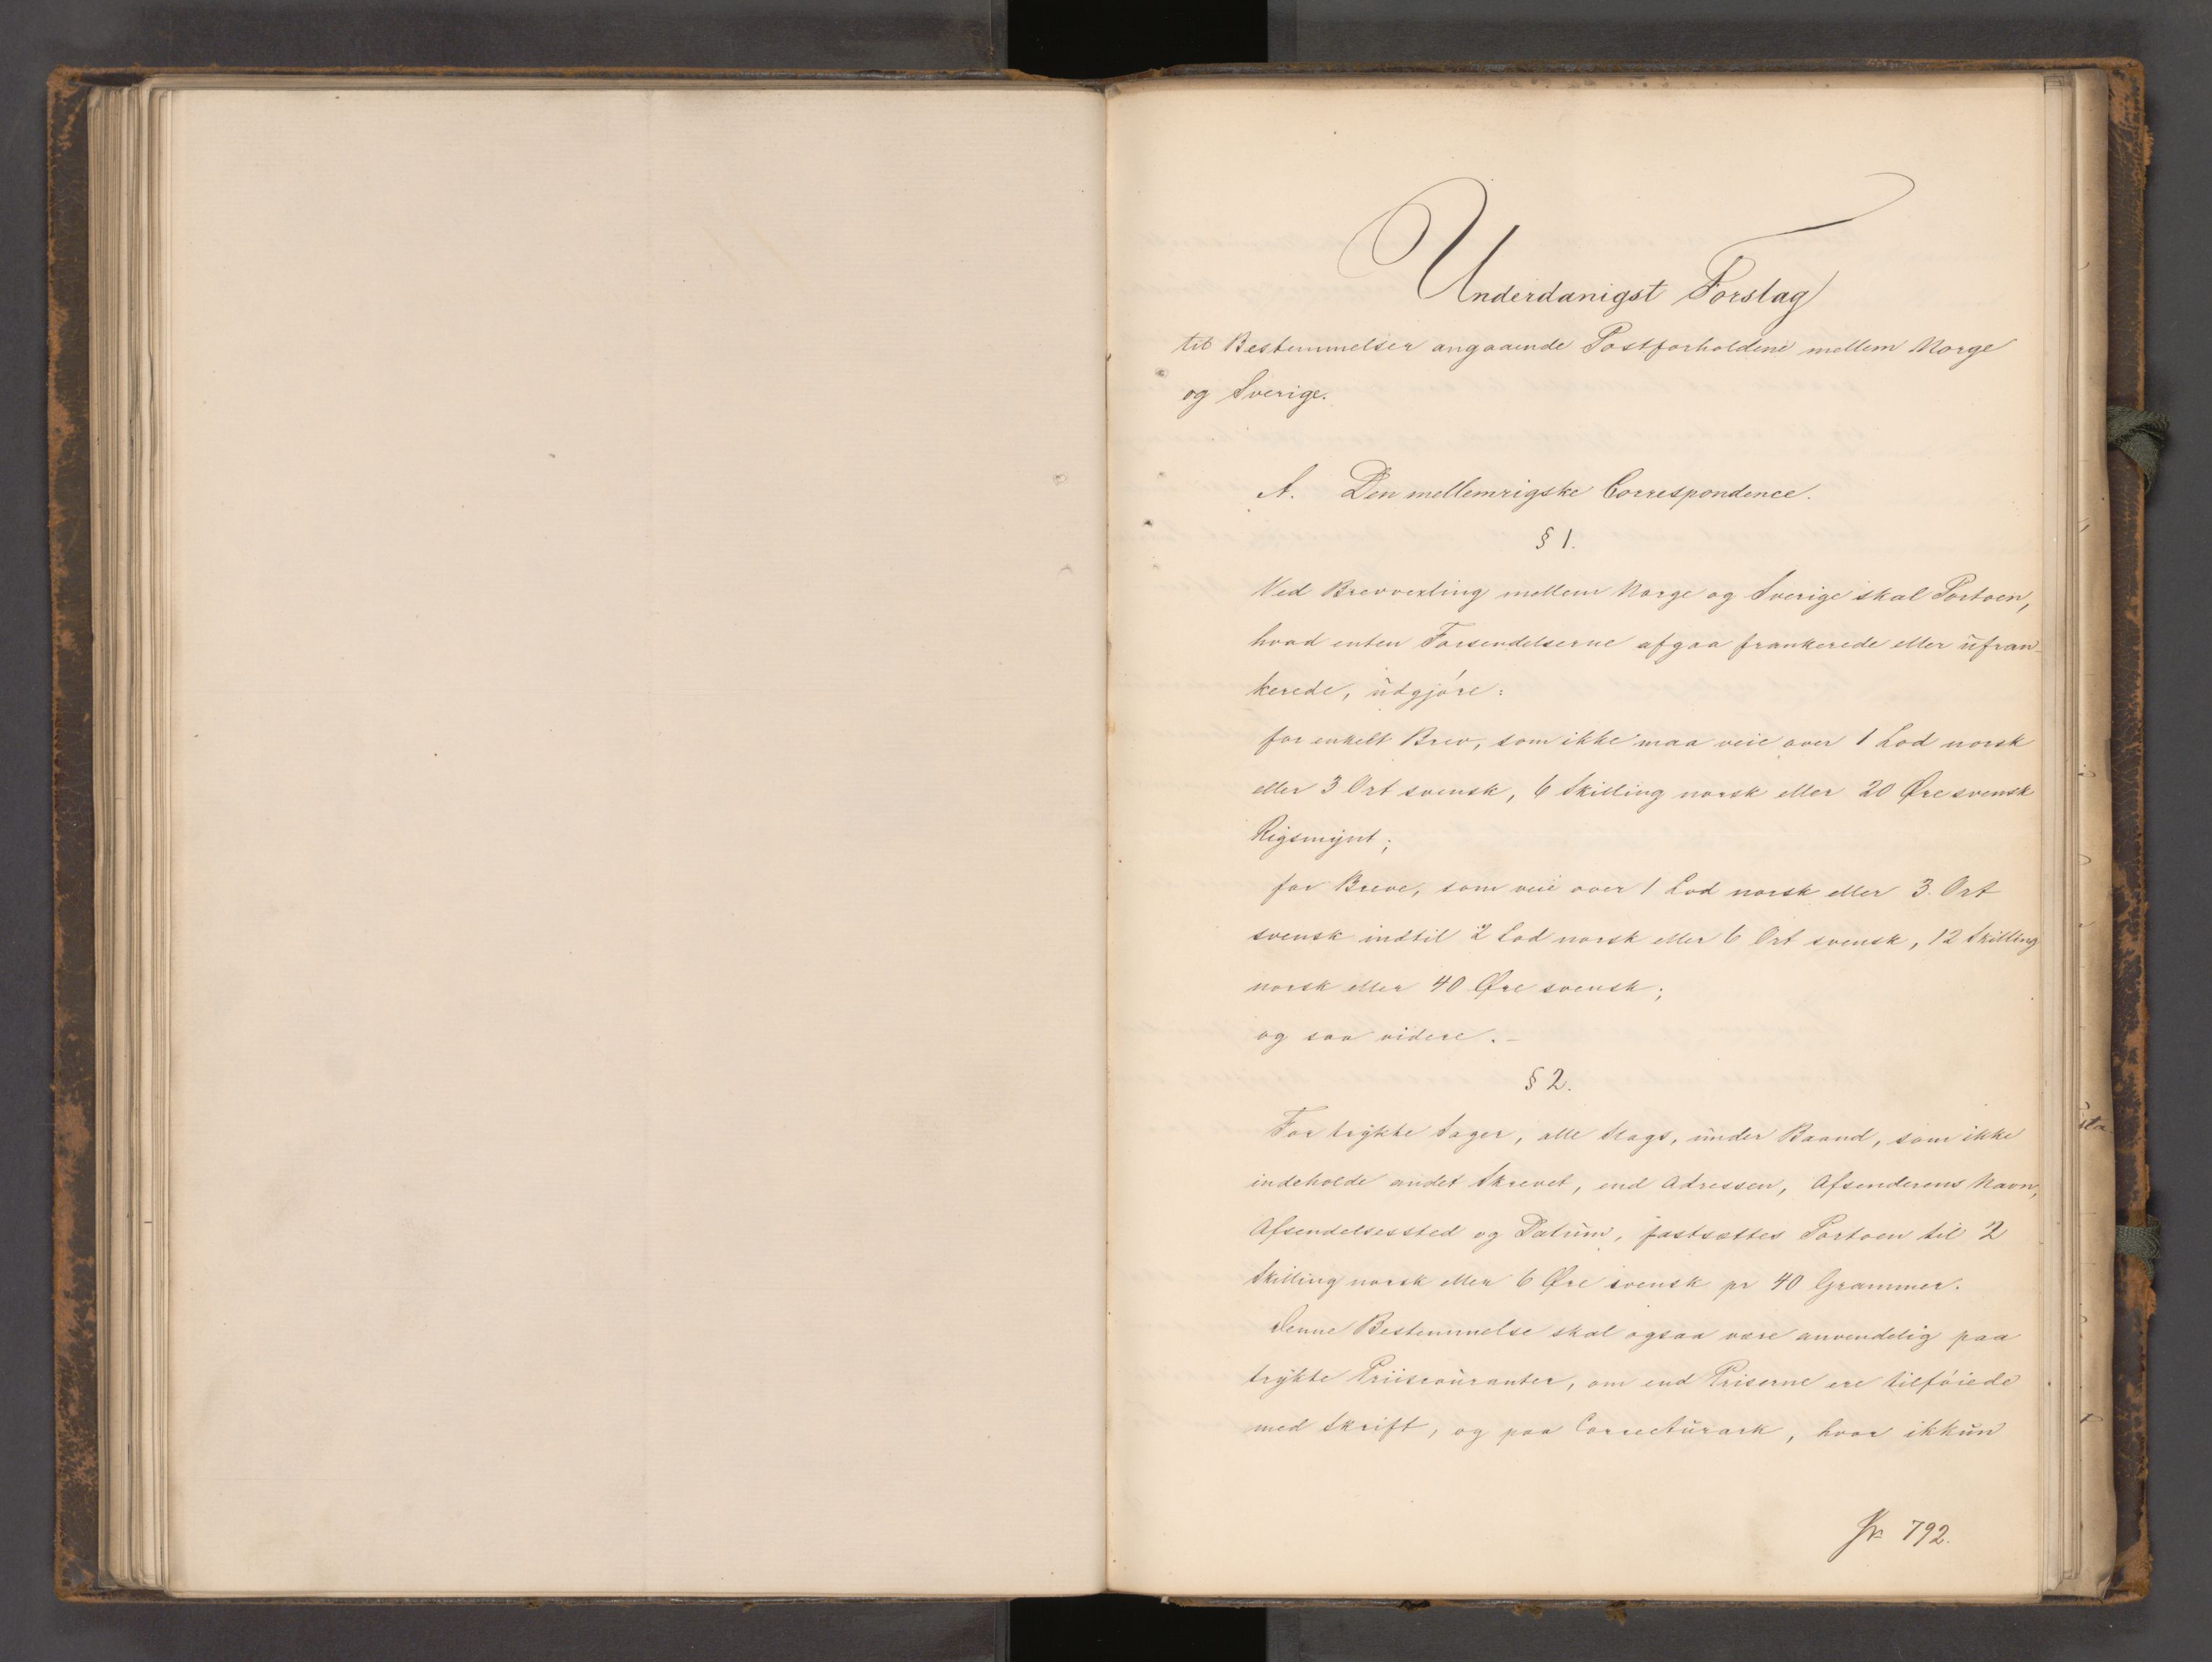 Underdanigst Forslag
til Bestemmelser angaaende Postforholdene mellem Norge
og Sverige.
A. Den mellemrigske Correspondence.
§ 1.
Ved Brevvexling mellem Norge og Sverige skal Portoen,
hvad enten Forsendelserne afgaa frankerede eller ufran-
kerede, udgjøre:
for enkelt Brev, som ikke maa veie over 1 Lod norsk
eller 3 Ort svensk, 6 Skilling norsk eller 20 Øre svensk
Rigsmynt;
for Breve, som veie over 1 Lod norsk eller 3. Ort
svensk indtil 2 Lod norsk eller 6 Ort svensk, 12 Skilling
norsk eller 40 Øre svensk;
og saa videre. -
§ 2.
For trykte Sager, alle Slags, under Baand, som ikke
indeholde andet Skrevet, end Adressen, Afsenderens Navn,
Afsendelsessted og Datum, fastsættes Portoen til 2
Skilling norsk eller 6 Øre svensk pr 40 Grammer.
Denne Bestemmelse skal ogsaa være anvendelig paa
trykte Priiscouranter, om end Priserne ere tilføiede
med Skrift, og paa Correcturark, hvor ikkun
792.